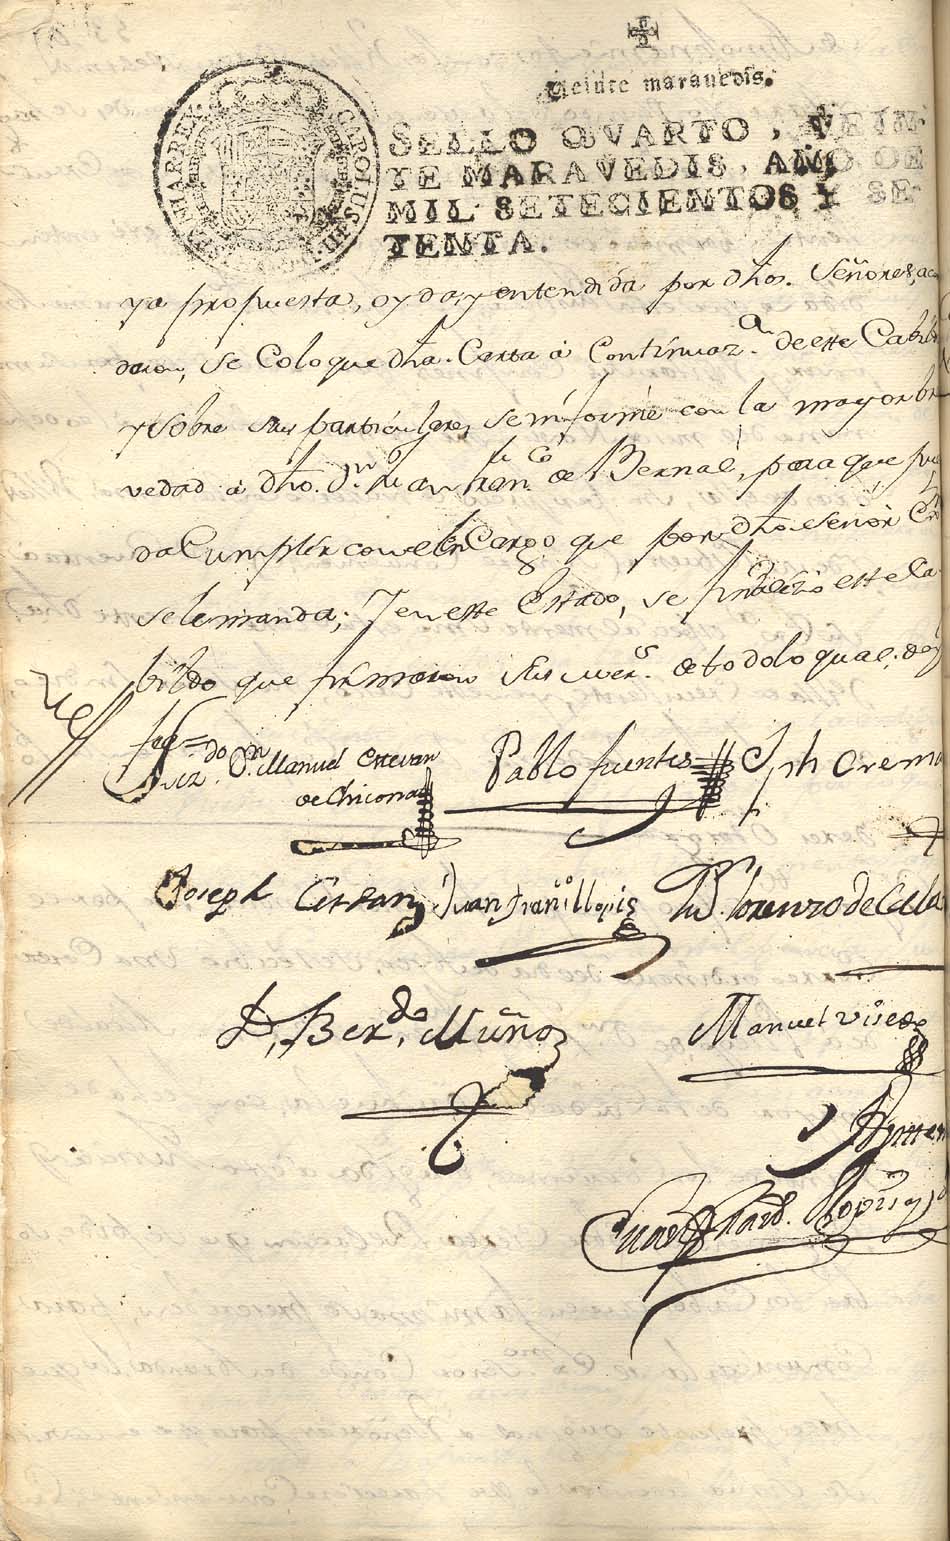 Veinte maravedis.
SELLO QVARTO, VEIN-
TE MARAVEDIS, AÑO DE
MIL SETECIENTOS Y SE-
TENTA.
CAROLUS III
HISPANIAR REX
ya propuesta, oyda, y entendida por dhos. Señores, acor
daron, se Coloque dha. Carta â Continuaz.on de este Cabil
y Sobre sus particulares se informe con la mayor bre
vedad â dho. Dn. Juan Franco. de Bernal, para que pue
da Cumplir con el enCargo que por dho. señor
se le manda; Y en este Estado, se finalizó este Ca-
bildo que firmaron sus mer.s de todo lo qual, doy
fee =
Lizdo. Dn. Manuel Estevan
de Chicona
Pablo fuentes
Jph Crema
Joseph Cerdan
Juan franco. llopis
Lorenzo de Cala
D. Ber.do Muñoz
Manuel Visedo
Llopis